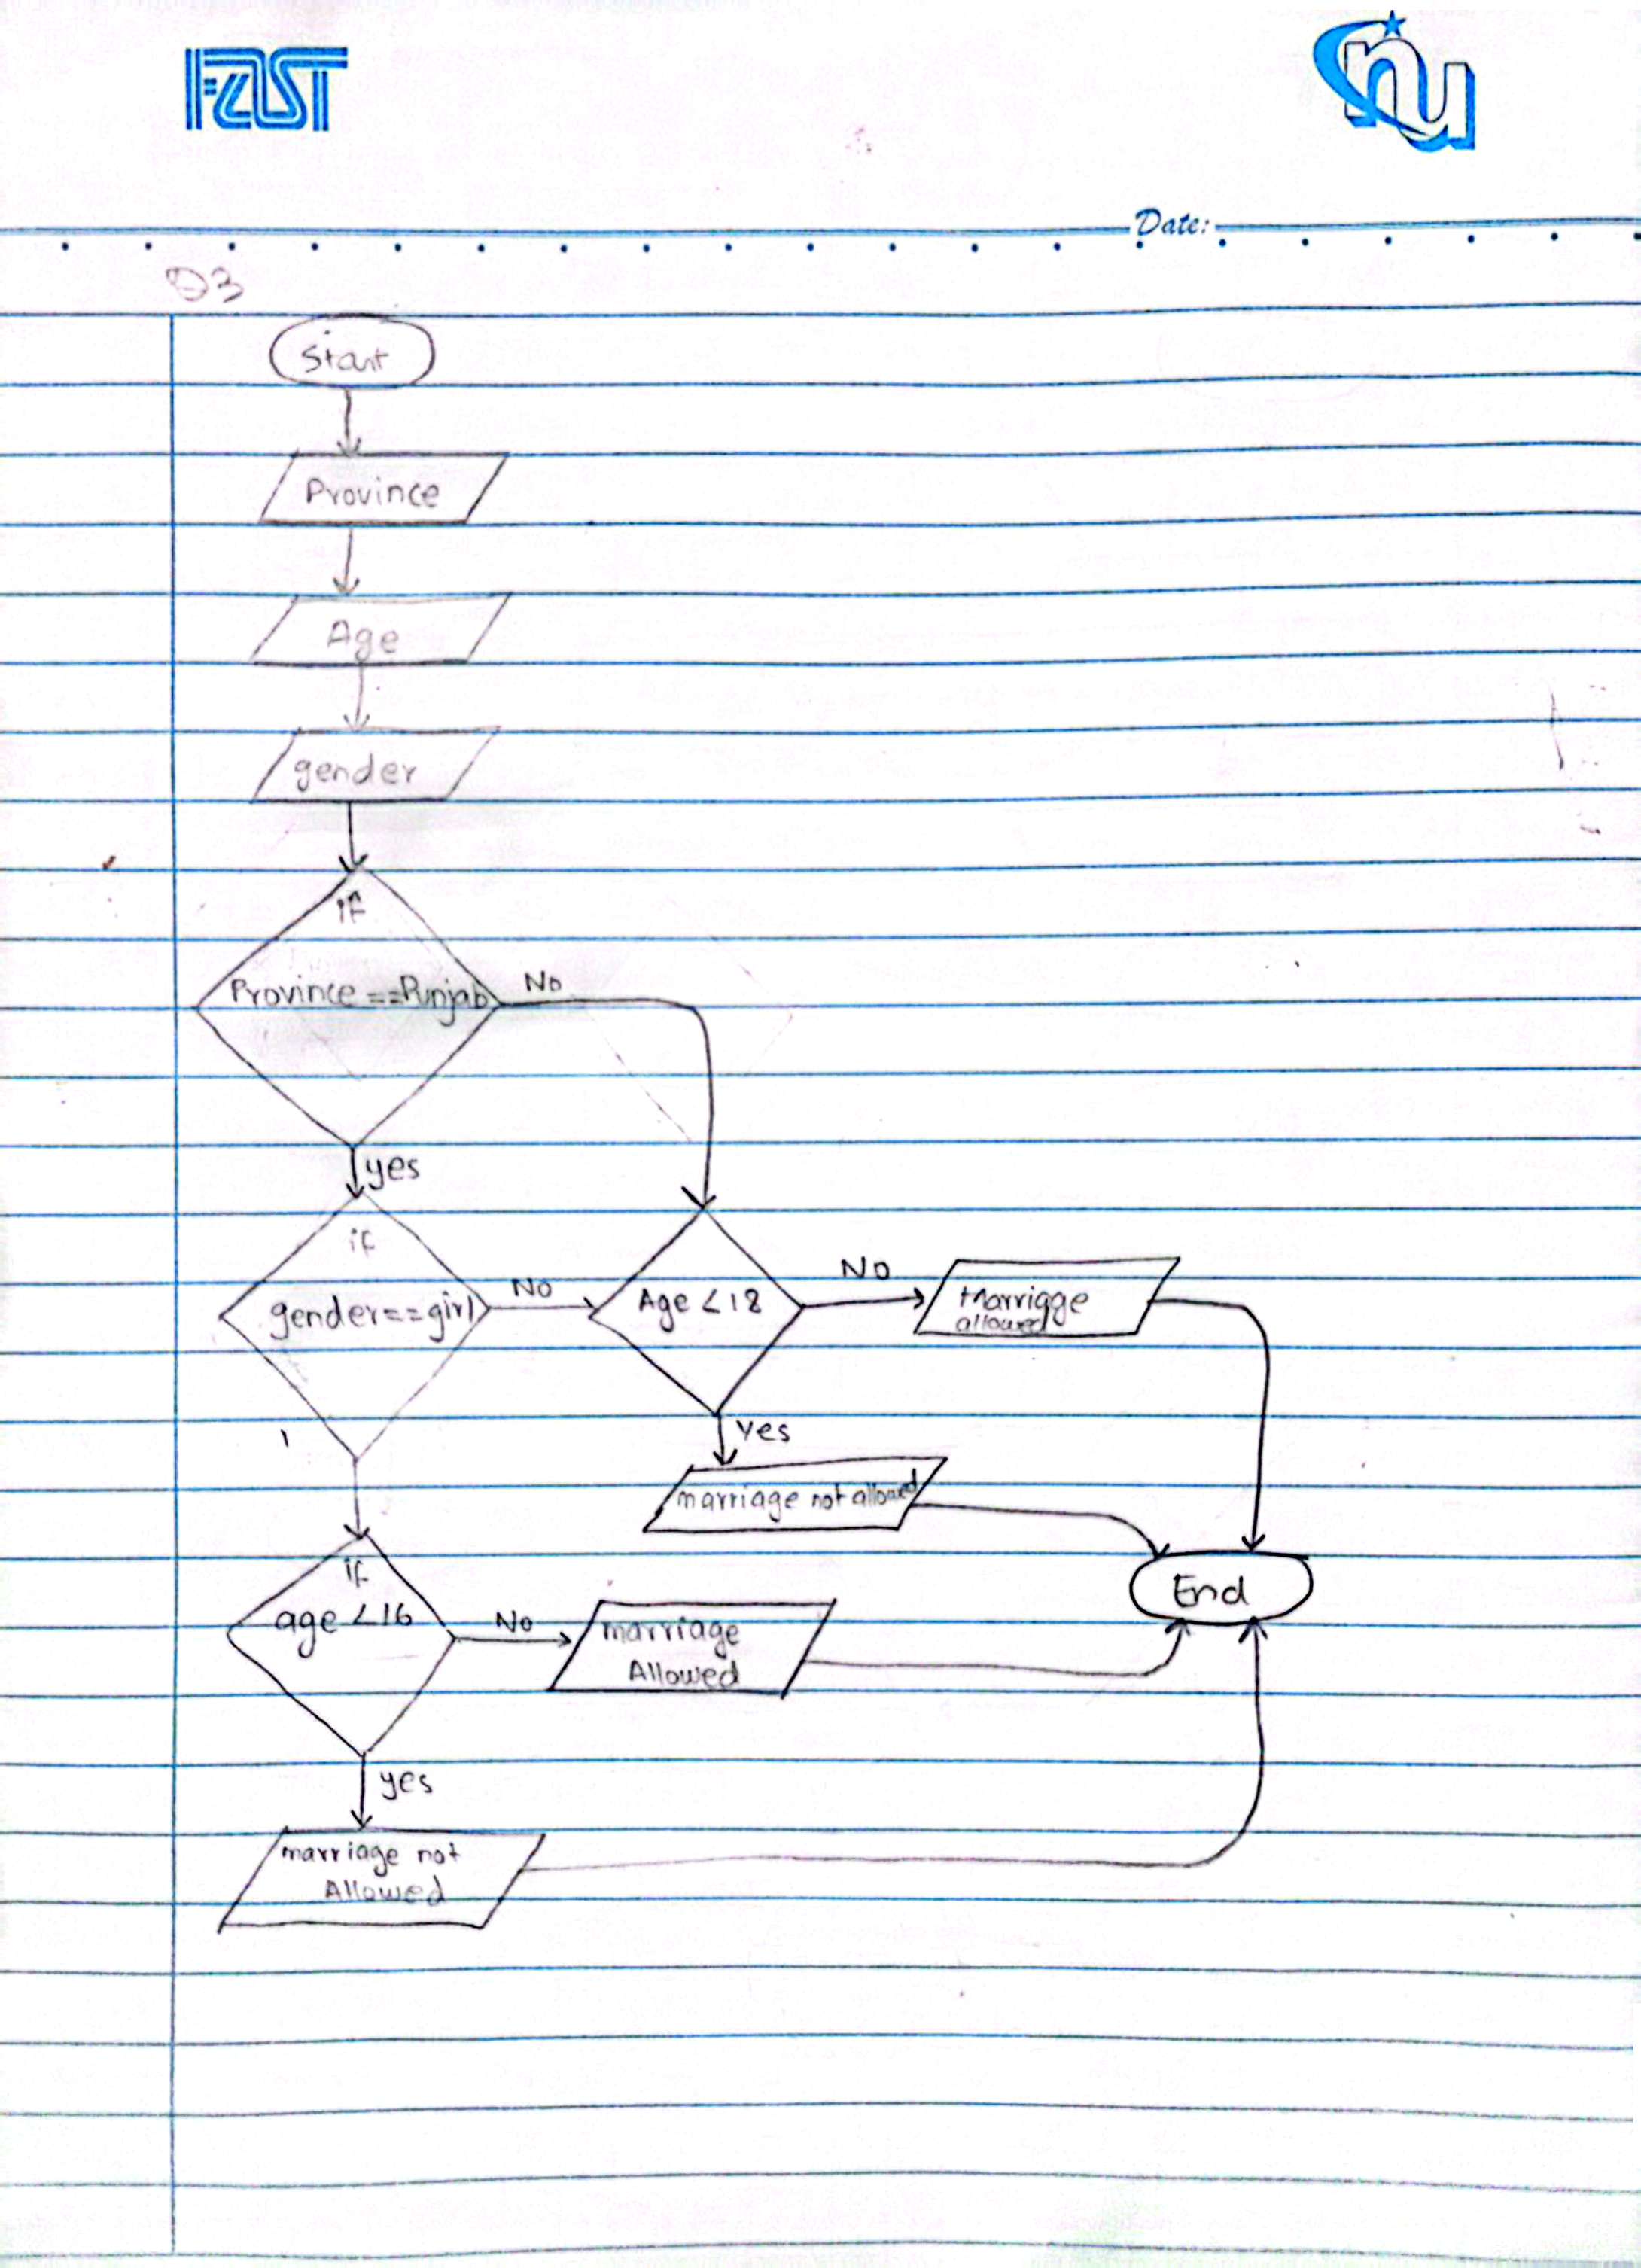 FAST
nu
Date:
Q3
Start
Province
Age
gender
if
Province ==Punjab
No
yes
if
gender==girl
No
Age <18
No
Marriage
allowed
Yes
marriage not allowed
if
age <16
No
marriage
Allowed
End
yes
marriage not
Allowed